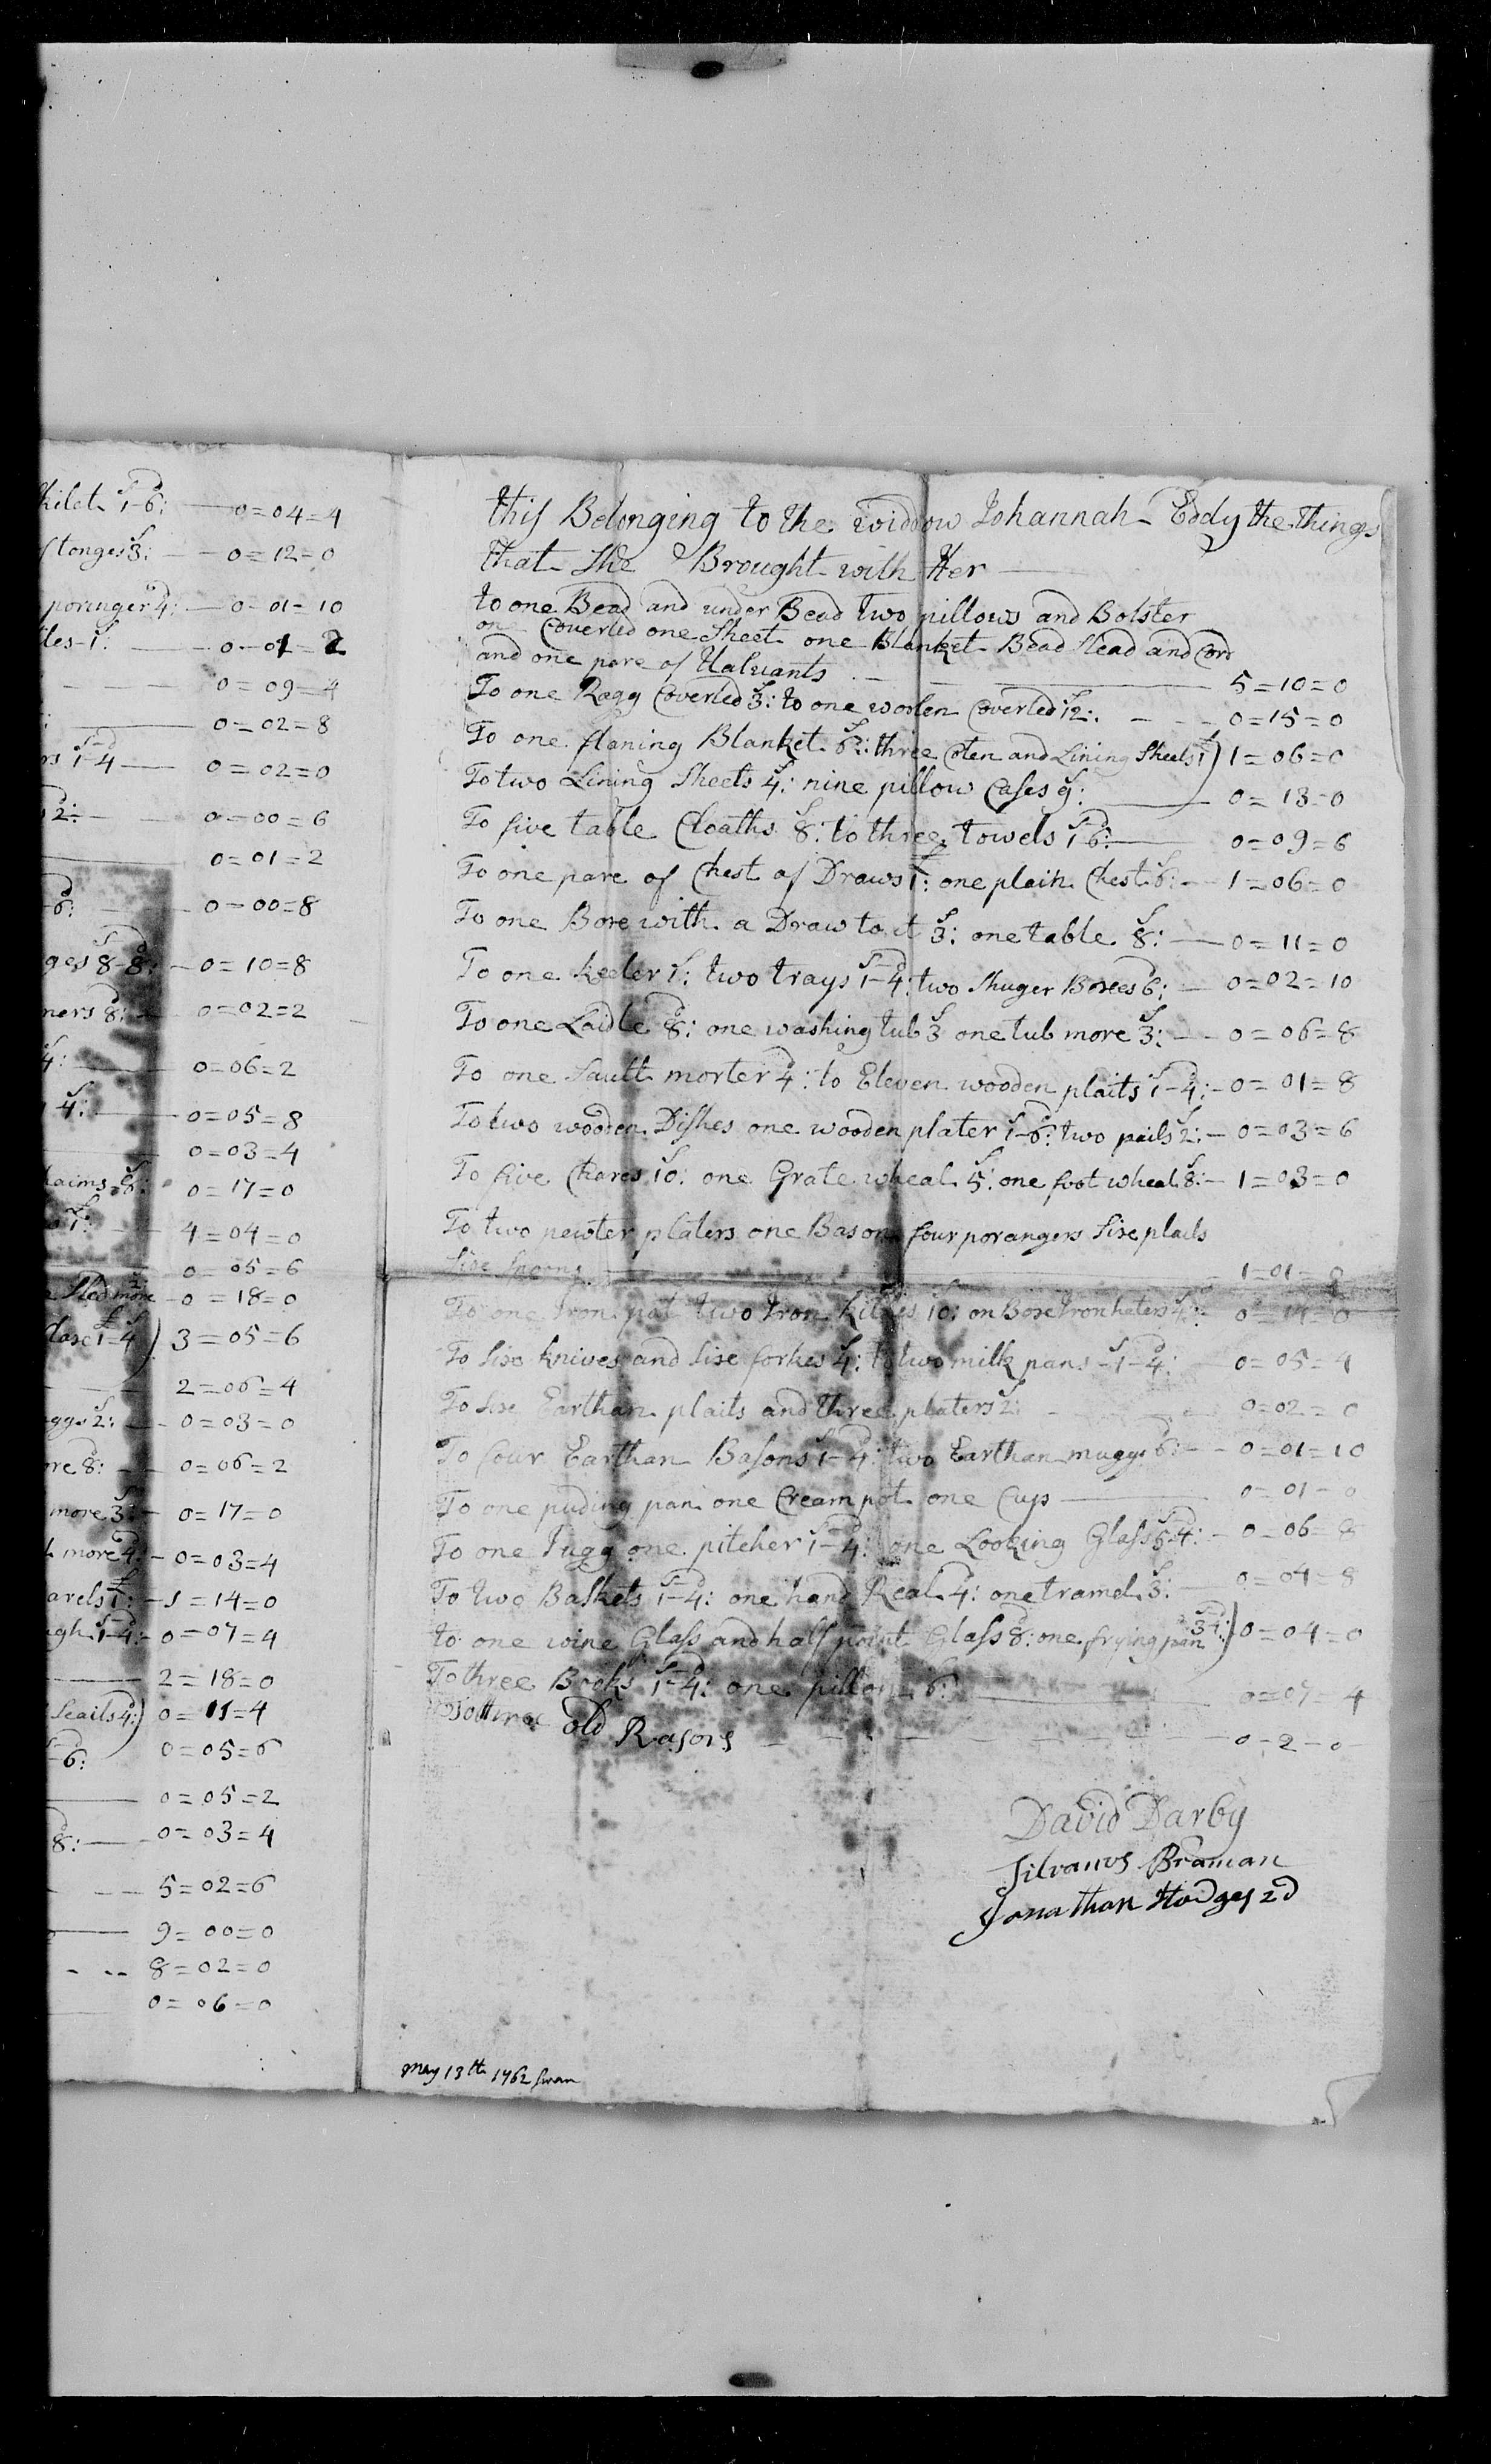 kilet 1-6: 0=04=4
tonges 3: 0=12=0
poringer 4: 0=01=10
tles-1: 0=01=2
0=09=4
0=02=8
rs 1-4 0=02=0
2: 0=00=6
0=01=2
6: 0=00=8
ges 8-8: 0=10=8
ners 8: 0=02=2
4: 0=06=2
4: 0=05=8
0=03=4
laims 8: 0=17=0
1: 4=04=0
0=05=6
Sled more 0=18=0
1-4) 3=05=6
2=06=4
ggs 2: 0=03=0
re 8: 0=06=2
more 3: 0=17=0
more 4: 0=03=4
arels 1: 1=14=0
gh 1-4: 0=07=4
2=18=0
Scails 4:) 0=11=4
-6: 0=05=6
0=05=2
8: 0=03=4
5=02=6
9=00=0
8=02=0
0=06=0
this Belonging to the widdow Johannah Eddy the things
that She Brought with Her
to one Bead and under Bead two pillows and Bolster
one Coverled one Sheet one Blanket Bead Stead and Cord
and one pare of Valuants 5=10=0
To one Ragg Coverled 3: to one woolen Coverled 12: 0=15=0
To one flaning Blanket 6: three Coten and Lining Sheets 1) 1=06=0
To two Lining Sheets 4: nine pillow Cases 9: 0=13=0
To five table Cloaths 8: to three towels 1-6: 0=09=6
To one pare of Chest of Draws 1: one plain Chest 6: 1=06=0
To one Boxe with a Draw to it 3: one table 8: 0=11=0
To one keeler 1: two trays 1-4: two Shuger Boxes 6: 0=02=10
To one Laidle 8: one washing tub 3 one tub more 3: 0=06=8
To one Sault morter 4: to Eleven wooden plaits 1-4: 0=01=8
To two wooden Dishes one wooden plater 1-6: two pails 2: 0=03=6
To five Chares 10: one Grate wheal 5: one foot wheal 8: 1=03=0
To two pewter platers one Bason four porangers Sixe plaits
Sixe Spoons 1=01=0
To one Iron pot two Iron kitles 10: on Boxe Iron haters 4: 0=14=0
To Sixe knives and Sixe forkes 4: to two milk pans 1-4: 0=05=4
To Sixe Earthan plaits and three platers 2: 0=02=0
To four Earthan Basons 1-4: two Earthan muggs 6: 0=01=10
To one puding pan one Cream pot one Cup 0=01=0
To one Jugg one pitcher 1-4: one Looking Glass 5-4: 0=06=8
To two Baskets 1-4: one hand Real 4: one tramel 3: 0=04=8
to one wine Glass and half point Glass 8: one frying pan 3-4:) 0=04=0
To three Books 1-4: one pillon 6: 0=07=4
old Rasors 0-2-0
David Darby
Silvanus Braman
Jonathan Hodges 2d
May 13th 1762 Swan